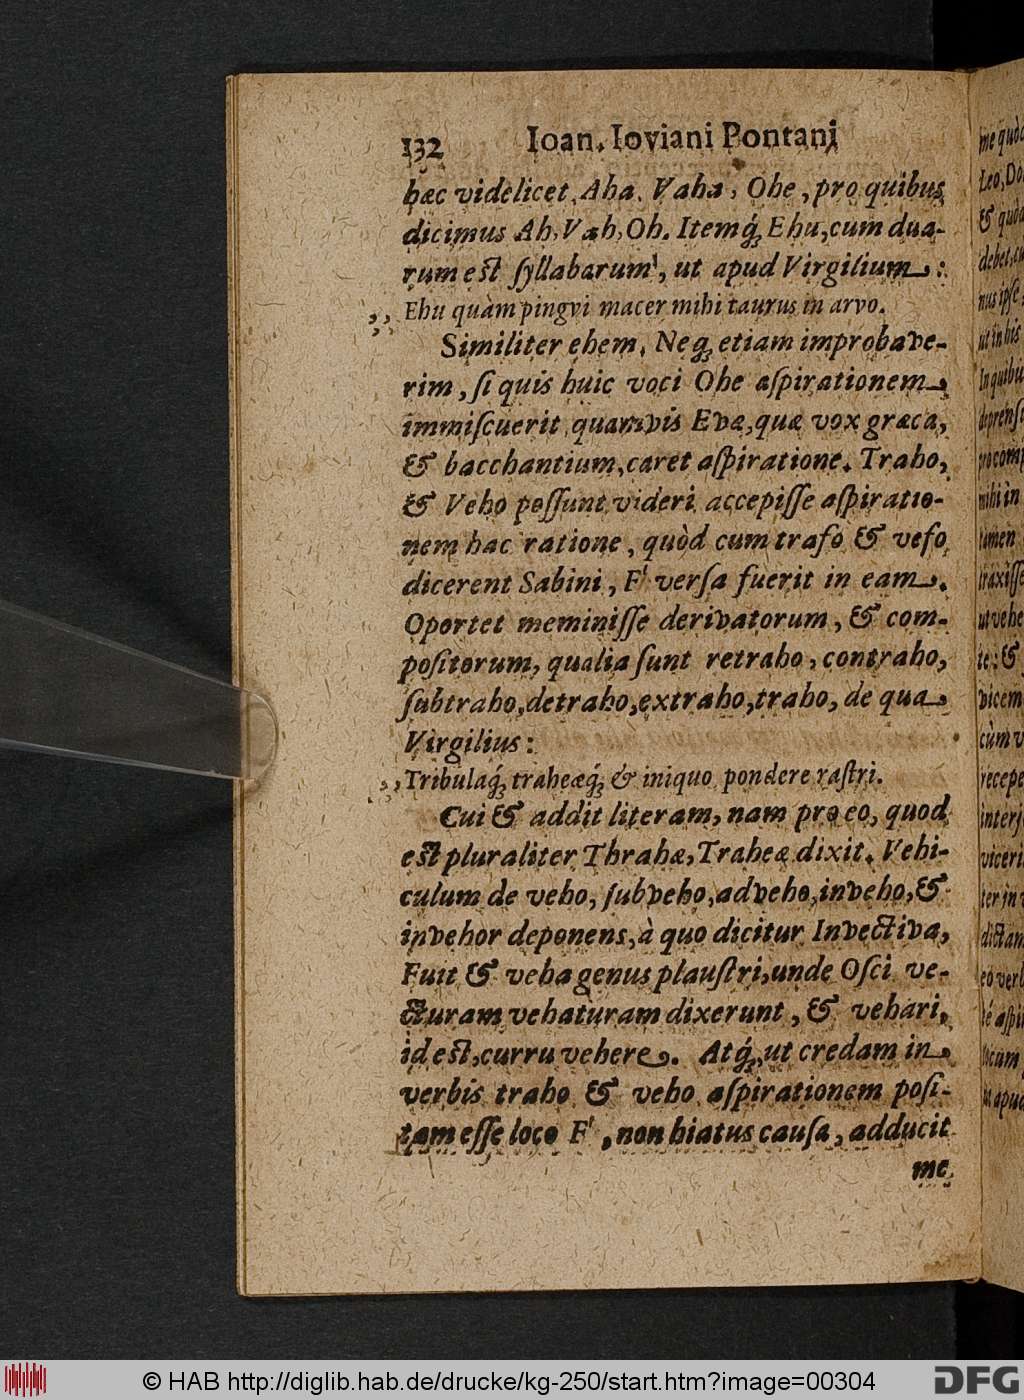 132 Ioan. Ioviani Pontani
hæc videlicet, Aha, Vaha, Ohe, pro quibus
dicimus Ah, Vah, Oh. Itemq́; Ehu, cum dua-
rum est syllabarum, ut apud Virgilium:
,, Ehu quàm pingvi macer mihi taurus in arvo.
Similiter ehem, Neq; etiam improbave-
rim, si quis huic voci Ohe aspirationem
immiscuerit quamvis Evæ, quæ vox græca,
& bacchantium, caret aspiratione. Traho,
& Veho possunt videri accepisse aspiratio-
nem hac ratione, quòd cum trafo & vefo
dicerent Sabini, F versa fuerit in eam.
Oportet meminisse derivatorum, & com-
positorum, qualia sunt retraho, contraho,
subtraho, detraho, extraho, traho, de qua
Virgilius:
,, Tribulaq́; traheæq́; & iniquo pondere rastri.
Cui & addit literam, nam pro eo, quod
est pluraliter Thrahæ, Traheæ dixit. Vehi-
culum de veho, subveho, adveho, inveho, &
invehor deponens, à quo dicitur Invectiva,
Fuit & veha genus plaustri, unde Osci ve-
cturam vehaturam dixerunt, & vehari,
id est, curru vehere. Atq́; ut credam in
verbis traho & veho aspirationem posi-
tam esse loco F, non hiatus causa, adducit
me
© HAB http://diglib.hab.de/drucke/kg-250/start.htm?image=00304
DFG